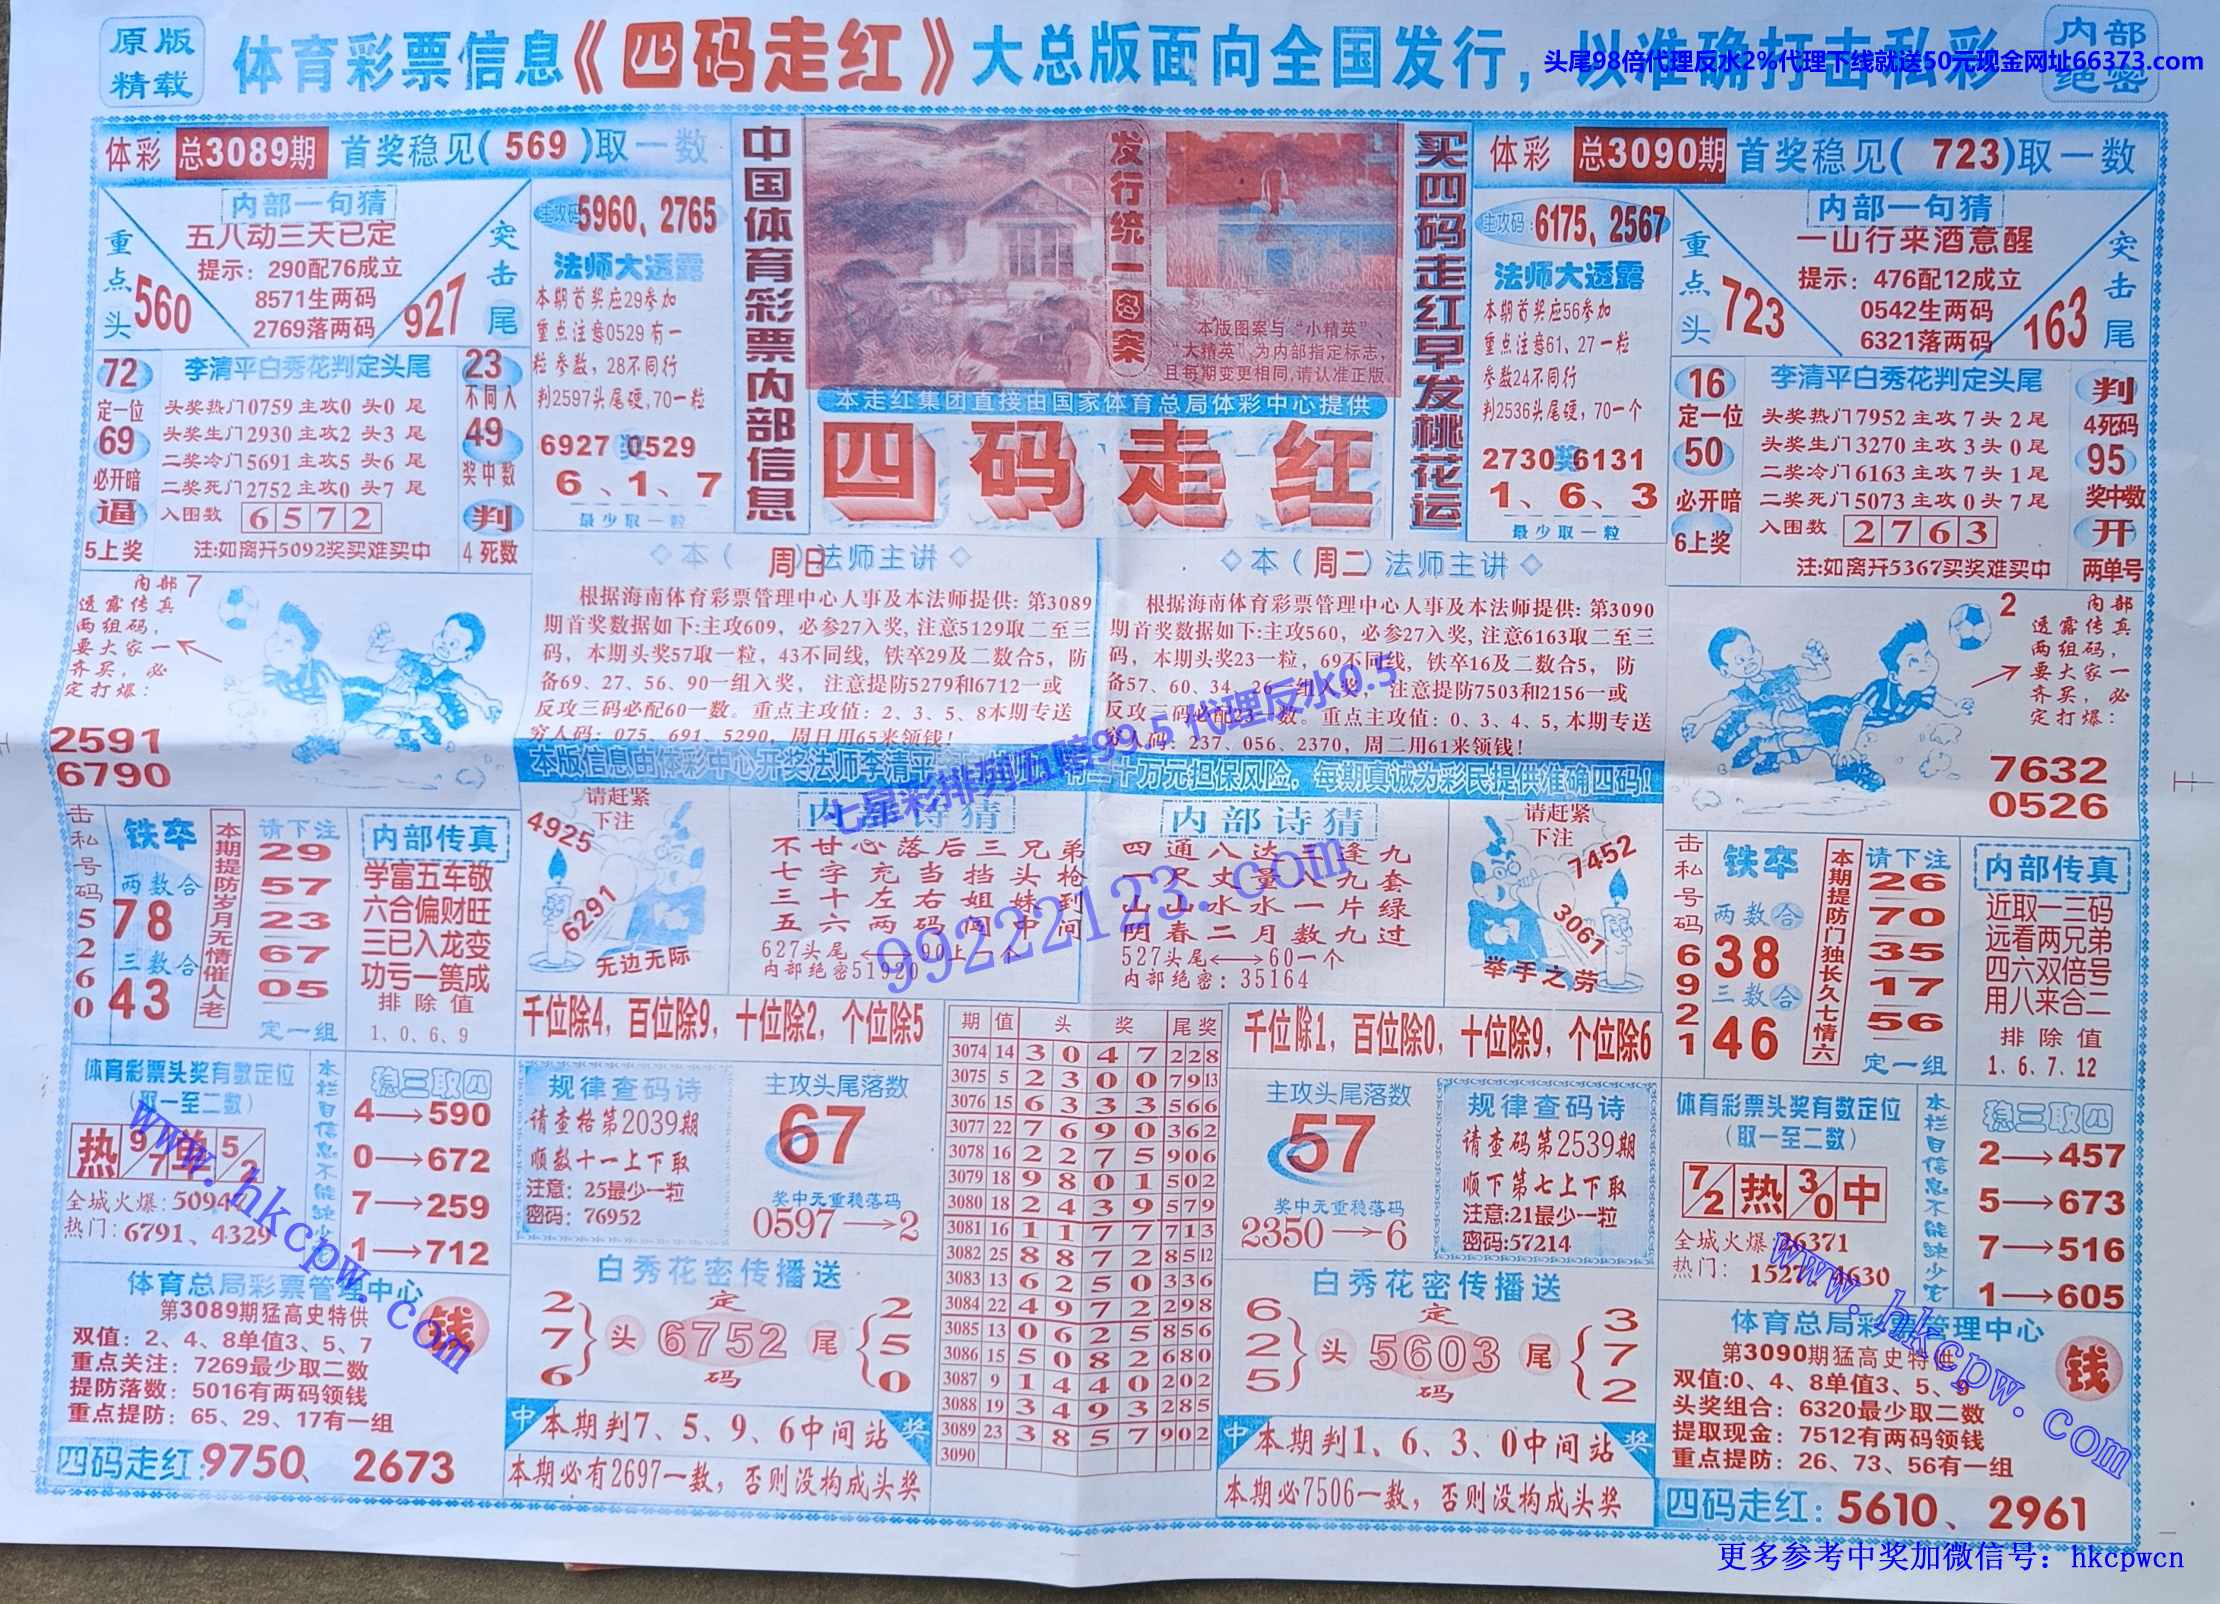 原版
精载
体育彩票信息《四码走红》大总版面向全国发行，以准确打击私彩
内部
绝密
头尾98倍代理反水2%代理下线就送50元现金网址66373.com
体彩 总3089期 首奖稳见(569)取一数
内部一句猜
五八动三天已定
提示：290配76成立
8571生两码
2769落两码
重点头
560
突击尾
927
主攻码 5960、2765
法师大透露
本期首奖应29参加
重点注意0529有一
粒参数，28不同行
判2597头尾硬,70一粒
6927奖0529
6、1、7
最少取一粒
72
定一位
69
必开暗
逼
5上奖
李清平白秀花判定头尾
头奖热门0759主攻0 头0 尾
头奖生门2930主攻2 头3 尾
二奖冷门5691主攻5 头6 尾
二奖死门2752主攻0 头7 尾
入围数 6572
注:如离开5092奖买难买中
23
不同入
49
奖中数
判
4死数
中国体育彩票内部信息
发行统一图案
本版图案与“小精英”、
“大精英”为内部指定标志，
且每期变更相同,请认准正版
本走红集团直接由国家体育总局体彩中心提供
四码走红
买四码走红早发桃花运
体彩 总3090期 首奖稳见(723)取一数
主攻码：6175、2567
法师大透露
本期首奖应56参加
重点注意61、27一粒
参数24不同行
判2536头尾硬，70一个
2730奖6131
1、6、3
最少取一粒
内部一句猜
一山行来酒意醒
提示：476配12成立
0542生两码
6321落两码
重点头
723
突击尾
163
16
定一位
50
必开暗
6上奖
李清平白秀花判定头尾
头奖热门7952主攻7头2尾
头奖生门3270主攻3头0尾
二奖冷门6163主攻7头1尾
二奖死门5073主攻0头7尾
入围数 2763
注:如离开5367买奖难买中
判
4死码
95
奖中数
开
两单号
内部7
透露传真
两组码，
要大家一
齐买，必
定打爆：
2591
6790
◇本（周日）法师主讲◇
根据海南体育彩票管理中心人事及本法师提供：第3089
期首奖数据如下:主攻609，必参27入奖,注意5129取二至三
码，本期头奖57取一粒，43不同线,铁卒29及二数合5，防
备69、27、56、90一组入奖，注意提防5279和6712一或
反攻三码必配60一数。重点主攻值：2、3、5、8本期专送
穷人码：075、691、5290，周日用65来领钱！
◇本（周二）法师主讲◇
根据海南体育彩票管理中心人事及本法师提供：第3090
期首奖数据如下:主攻560，必参27入奖,注意6163取二至三
码，本期头奖23一粒，69不同线,铁卒16及二数合5，防
备57、60、34、26一组入奖，注意提防7503和2156一或
反攻三码必配23一数。重点主攻值：0、3、4、5,本期专送
穷人码：237、056、2370，周二用61来领钱！
2 内部
透露传真
两组码，
要大家一
齐买，必
定打爆：
7632
0526
本版信息由体彩中心开奖法师李清平
十万元担保风险，每期真诚为彩民提供准确四码！
七星彩排列五赔99.5 代理反水0.5
99222123.com
击私号码5260
铁卒
两数合
78
三数合
43
本期提防岁月无情催人老
请下注
29
57
23
67
05
定一组
内部传真
学富五车敬
六合偏财旺
三已入龙变
功亏一篑成
排除值
1、0、6、9
请赶紧
下注
4925
6291
无边无际
内部诗猜
不甘心落后三兄弟
七字充当挡头枪
三十左右姐妹到
五六两码闯中间
627头尾←→90上一个
内部绝密51920
内部诗猜
四通八达三逢九
一尺丈量八九套
山山水水一片绿
阴春二月数九过
527头尾←→60一个
内部绝密：35164
请赶紧
下注
7452
3061
举手之劳
击私号码6921
铁卒
两数合
38
三数合
46
本期提防门独长久七情六
请下注
26
70
35
17
56
定一组
内部传真
近取一三码
远看两兄弟
四六双倍号
用八来合二
排除值
1、6、7、12
千位除4，百位除9，十位除2，个位除5
千位除1，百位除0，十位除9，个位除6
体育彩票头奖有数定位
（取一至二数）
热 9/7 单 5/2
全城火爆：5094
热门：6791、4329
本栏目信息不能缺少它
稳三取四
4→590
0→672
7→259
1→712
规律查码诗
请查格第2039期
顺数十一上下取
注意：25最少一粒
密码：76952
主攻头尾落数
67
奖中无重稳落码
0597→2
期 值 头奖 尾奖
3074 14 3 0 4 7 2 2 8
3075 5 2 3 0 0 7 9 13
3076 15 6 3 3 3 5 6 6
3077 22 7 6 9 0 3 6 2
3078 16 2 2 7 5 9 0 6
3079 18 9 8 0 1 5 0 2
3080 18 2 4 3 9 5 7 9
3081 16 1 1 7 7 7 1 3
3082 25 8 8 7 2 8 5 12
3083 13 6 2 5 0 3 3 6
3084 22 4 9 7 2 2 9 8
3085 13 0 6 2 5 8 5 6
3086 15 5 0 8 2 6 8 0
3087 9 1 4 4 0 2 0 2
3088 19 3 4 9 3 2 8 5
3089 23 3 8 5 7 9 0 2
3090
主攻头尾落数
57
奖中无重稳落码
2350→6
规律查码诗
请查码第2539期
顺下第七上下取
注意:21最少一粒
密码:57214
体育彩票头奖有数定位
（取一至二数）
7/2 热 3/0 中
全城火爆 26371
热门：1527 4630
本栏目信息不能缺少它
稳三取四
2→457
5→673
7→516
1→605
体育总局彩票管理中心
第3089期猛高史特供
双值：2、4、8单值3、5、7
重点关注：7269最少取二数
提防落数：5016有两码领钱
重点提防：65、29、17有一组
钱
四码走红:9750、2673
白秀花密传播送
2
7
6
头 定 6752 码 尾
2
5
0
中 本期判7、5、9、6中间站 奖
本期必有2697一数，否则没构成头奖
白秀花密传播送
6
2
5
头 定 5603 码 尾
3
7
2
中 本期判1、6、3、0中间站 奖
本期必7506一数，否则没构成头奖
体育总局彩票管理中心
第3090期猛高史特供
双值:0、4、8单值3、5、9
头奖组合：6320最少取二数
提取现金：7512有两码领钱
重点提防：26、73、56有一组
钱
四码走红：5610、2961
www.hkcpw.com
www.hkcpw.com
更多参考中奖加微信号：hkcpwcn